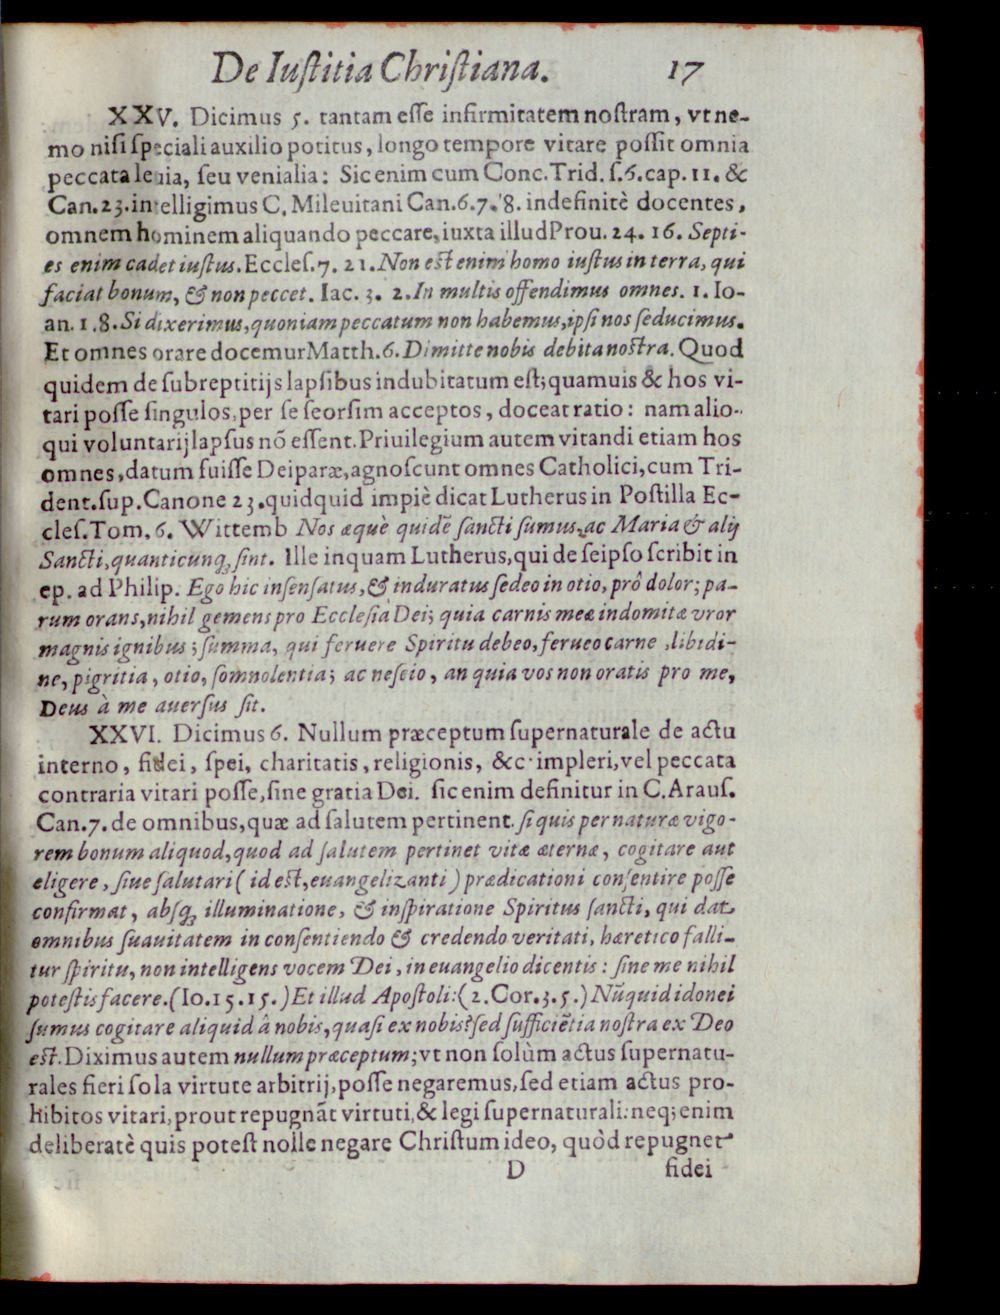 De Iuſtitia Chriſtiana. 17
XXV. Dicimus 5. tantam eſſe infirmitatem noſtram, vt ne-
mo niſi ſpeciali auxilio potitus, longo tempore vitare poſſit omnia
peccata leuia, ſeu venialia: Sic enim cum Conc. Trid. ſ.6.cap. 11. &
Can.23.intelligimus C. Mileuitani Can.6.7. 8. indefinitè docentes,
omnem hominem aliquando peccare, iuxta illud Prou. 24. 16. Septi-
es enim cadet iuſtus. Eccleſ.7. 21. Non eſt enim homo iuſtus in terra, qui
faciat bonum, & non peccet. Iac. 3. 2. In multis offendimus omnes. 1. Io-
an. 1.8. Si dixerimus, quoniam peccatum non habemus, ipſi nos ſeducimus.
Et omnes orare docemur Matth.6. Dimitte nobis debita noſtra. Quod
quidem de ſubreptitijs lapſibus indubitatum eſt; quamuis & hos vi-
tari poſſe ſingulos, per ſe ſeorſim acceptos, doceat ratio: nam alio-
qui voluntarij lapſus nō eſſent. Priuilegium autem vitandi etiam hos
omnes, datum fuiſſe Deiparæ, agnoſcunt omnes Catholici, cum Tri-
dent. ſup. Canone 23. quidquid impiè dicat Lutherus in Poſtilla Ec-
cleſ. Tom. 6. Wittemb Nos æquè quidē ſancti ſumus, ac Maria & alij
Sancti, quanticunq; ſint. Ille inquam Lutherus, qui de ſeipſo ſcribit in
ep. ad Philip. Ego hic inſenſatus, & induratus ſedeo in otio, prô dolor; pa-
rum orans, nihil gemens pro Eccleſia Dei; quia carnis meæ indomitæ vror
magnis ignibus; ſumma, qui feruere Spiritu debeo, ferueo carne, libidi-
ne, pigritia, otio, ſomnolentia; ac neſcio, an quia vos non oratis pro me,
Deus à me auerſus ſit.
XXVI. Dicimus 6. Nullum præceptum ſupernaturale de actu
interno, fidei, ſpei, charitatis, religionis, &c. impleri, vel peccata
contraria vitari poſſe, ſine gratia Dei. ſic enim definitur in C. Arauſ.
Can.7. de omnibus, quæ ad ſalutem pertinent. ſi quis per naturæ vigo-
rem bonum aliquod, quod ad ſalutem pertinet vitæ æternæ, cogitare aut
eligere, ſiue ſalutari (id eſt, euangelizanti) prædicationi conſentire poſſe
confirmat, abſq; illuminatione, & inſpiratione Spiritus ſancti, qui dat
omnibus ſuauitatem in conſentiendo & credendo veritati, hæretico falli-
tur ſpiritu, non intelligens vocem Dei, in euangelio dicentis: ſine me nihil
poteſtis facere. (Io.15.15.) Et illud Apoſtoli: (2.Cor.3.5.) Nūquid idonei
ſumus cogitare aliquid â nobis, quaſi ex nobis? ſed ſufficiētia noſtra ex Deo
eſt. Diximus autem nullum præceptum; vt non ſolùm actus ſupernatu-
rales fieri ſola virtute arbitrij, poſſe negaremus, ſed etiam actus pro-
hibitos vitari, prout repugnāt virtuti, & legi ſupernaturali: neq; enim
deliberatè quis poteſt nolle negare Chriſtum ideo, quòd repugnet
D fidei